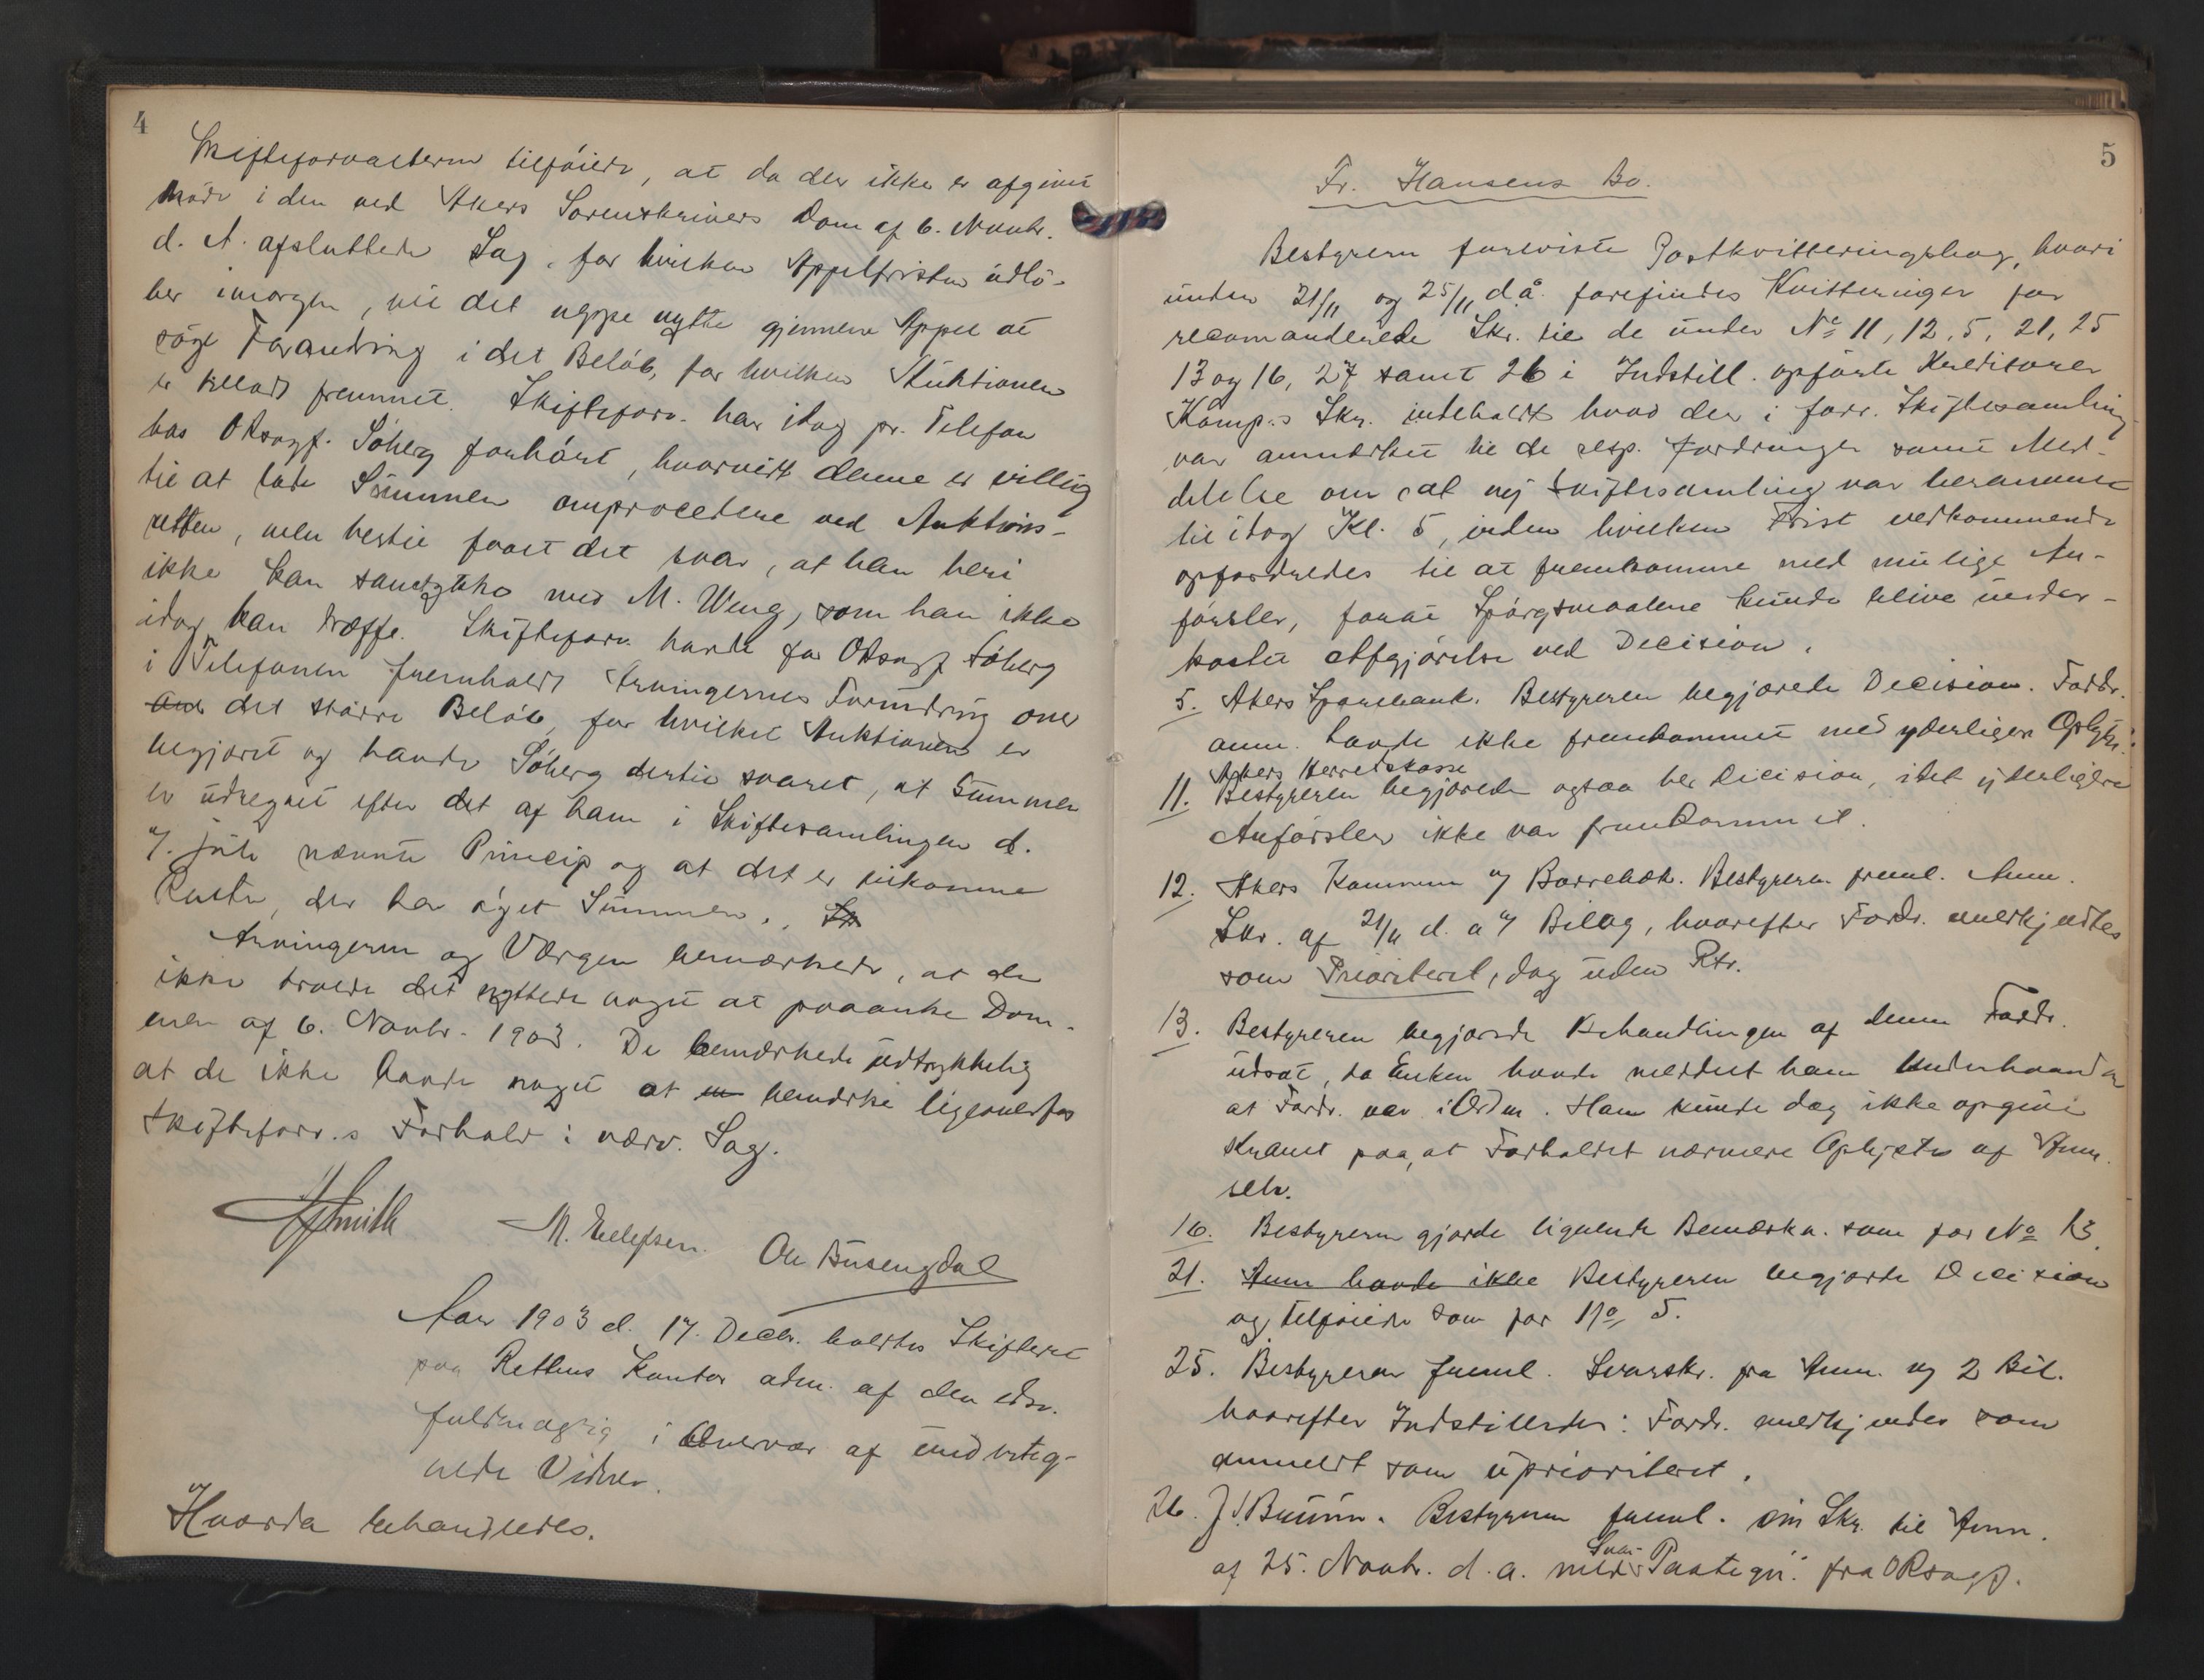 4
Skifteforvalteren tilføiede, at da der ikke er afgivet
møde i den ved Akers Sorenskrivers Dom af 6. Novbr.
d. A. afsluttede Sag, for hvilken Appelfristen udlø-
ber imorgen, vil det neppe nytte gjennem Appel at
søge Forandring i det Beløb, for hvilken Auktionen
er krevet fremmet. Skifteforv. har idag pr. Telefon
hos ORsagf. Söberg forhørt, hvorvidt denne er villig
til at lade Summen omprocedere ved Auktions-
retten, men hertil faaet det svar, at han heri
ikke kan samtykke med M. Weng, som han ikke
idag kan træffe. Skifteforv. havde for ORsagf Söberg
i Telefonen fremholdt Arvingernes Forundring over
det større Beløb, for hvilket Auktionen er
begjæret og havde Söberg dertil svaret, at Summen
er udregnet efter det af ham i Skiftesamlingen d.
7. juli nævnte Princip og at det er tilkomne
Renter, der har øget Summen.
Arvingerne og Værgen bemærkede, at de
ikke troede det nyttede noget at paaanke Dom-
men af 6. Novbr. 1903. De bemærkede udtrykkelig
at de ikke havde noget at bemærke ligeoverfor
Skifteforv.s Forhold i nærv. Sag.
Smith M. Ellefsen. Ole Busengdal
Aar 1903 d. 17. Decbr. holdtes Skifteret
paa Rettens Kontor adm. af den edsv.
fuldmægtig i Overvær af underteg-
nede Vidner.
Hvorda behandledes.
5
Fr. Hansens Bo.
Bestyreren foreviste Postkvitteringsbog, hvori
under 21/11 og 25/11 d.å. forefindes Kvitteringer for
recomanderede Skr. til de under No 11, 12, 5, 21, 25
13 og 16, 27 samt 26 i Indstill. opførte Kreditorer
Komp.s Skr. indeholdt hvad der i forr. Skiftesamling
var anmærket til de resp. Fordringer samt Med-
delelse om at ny Skiftesamling var berammet
til idag Kl. 5, inden hvilken Frist vedkommende
opfordredes til at fremkomme med mulige An-
førsler, forat Spørgsmaalene kunde blive under-
kastet Afgjørelse ved Decision.
5. Akers Sparebank. Bestyreren begjærede Decision. Fordr.
anm. havde ikke fremkommet med yderligere Oplysn.
Akers Herredskasse
11. Bestyreren begjærede ogsaa her Decision, idet yderligere
Anførsler ikke var fremkommet.
12. Akers Kommune v/ Borrebæk. Bestyreren freml. Anm.
Skr. af 21/11 d. a. og Bilag, hvorefter Fordr. anerkjendtes
som Prioriteret, dog uden Rtr.
13. Bestyreren begjærede Behandlingen af denne Fordr.
udsat, da Enken havde meddelt ham underhaanden
at Fordr. var i Orden. Han kunde dog ikke opgive
Kravet paa, at Forholdet nærmere Oplystes af Anm.
selv.
16. Bestyreren gjorde lignende Bemærkn. som for No 13.
21. Anm havde ikke Bestyreren begjærte Decision
og tilføiede som for No 5.
25. Bestyreren freml. Svarskr. fra Anm. og 2 Bil.
hvorefter Indstilledes: Fordr. anerkjendes som
anmeldt som uprioriteret.
26. J. Bruun. Bestyreren freml. sin Skr. til Anm.
af 25. Novbr. d. a. med Svar-Paategn. fra ORsagf.